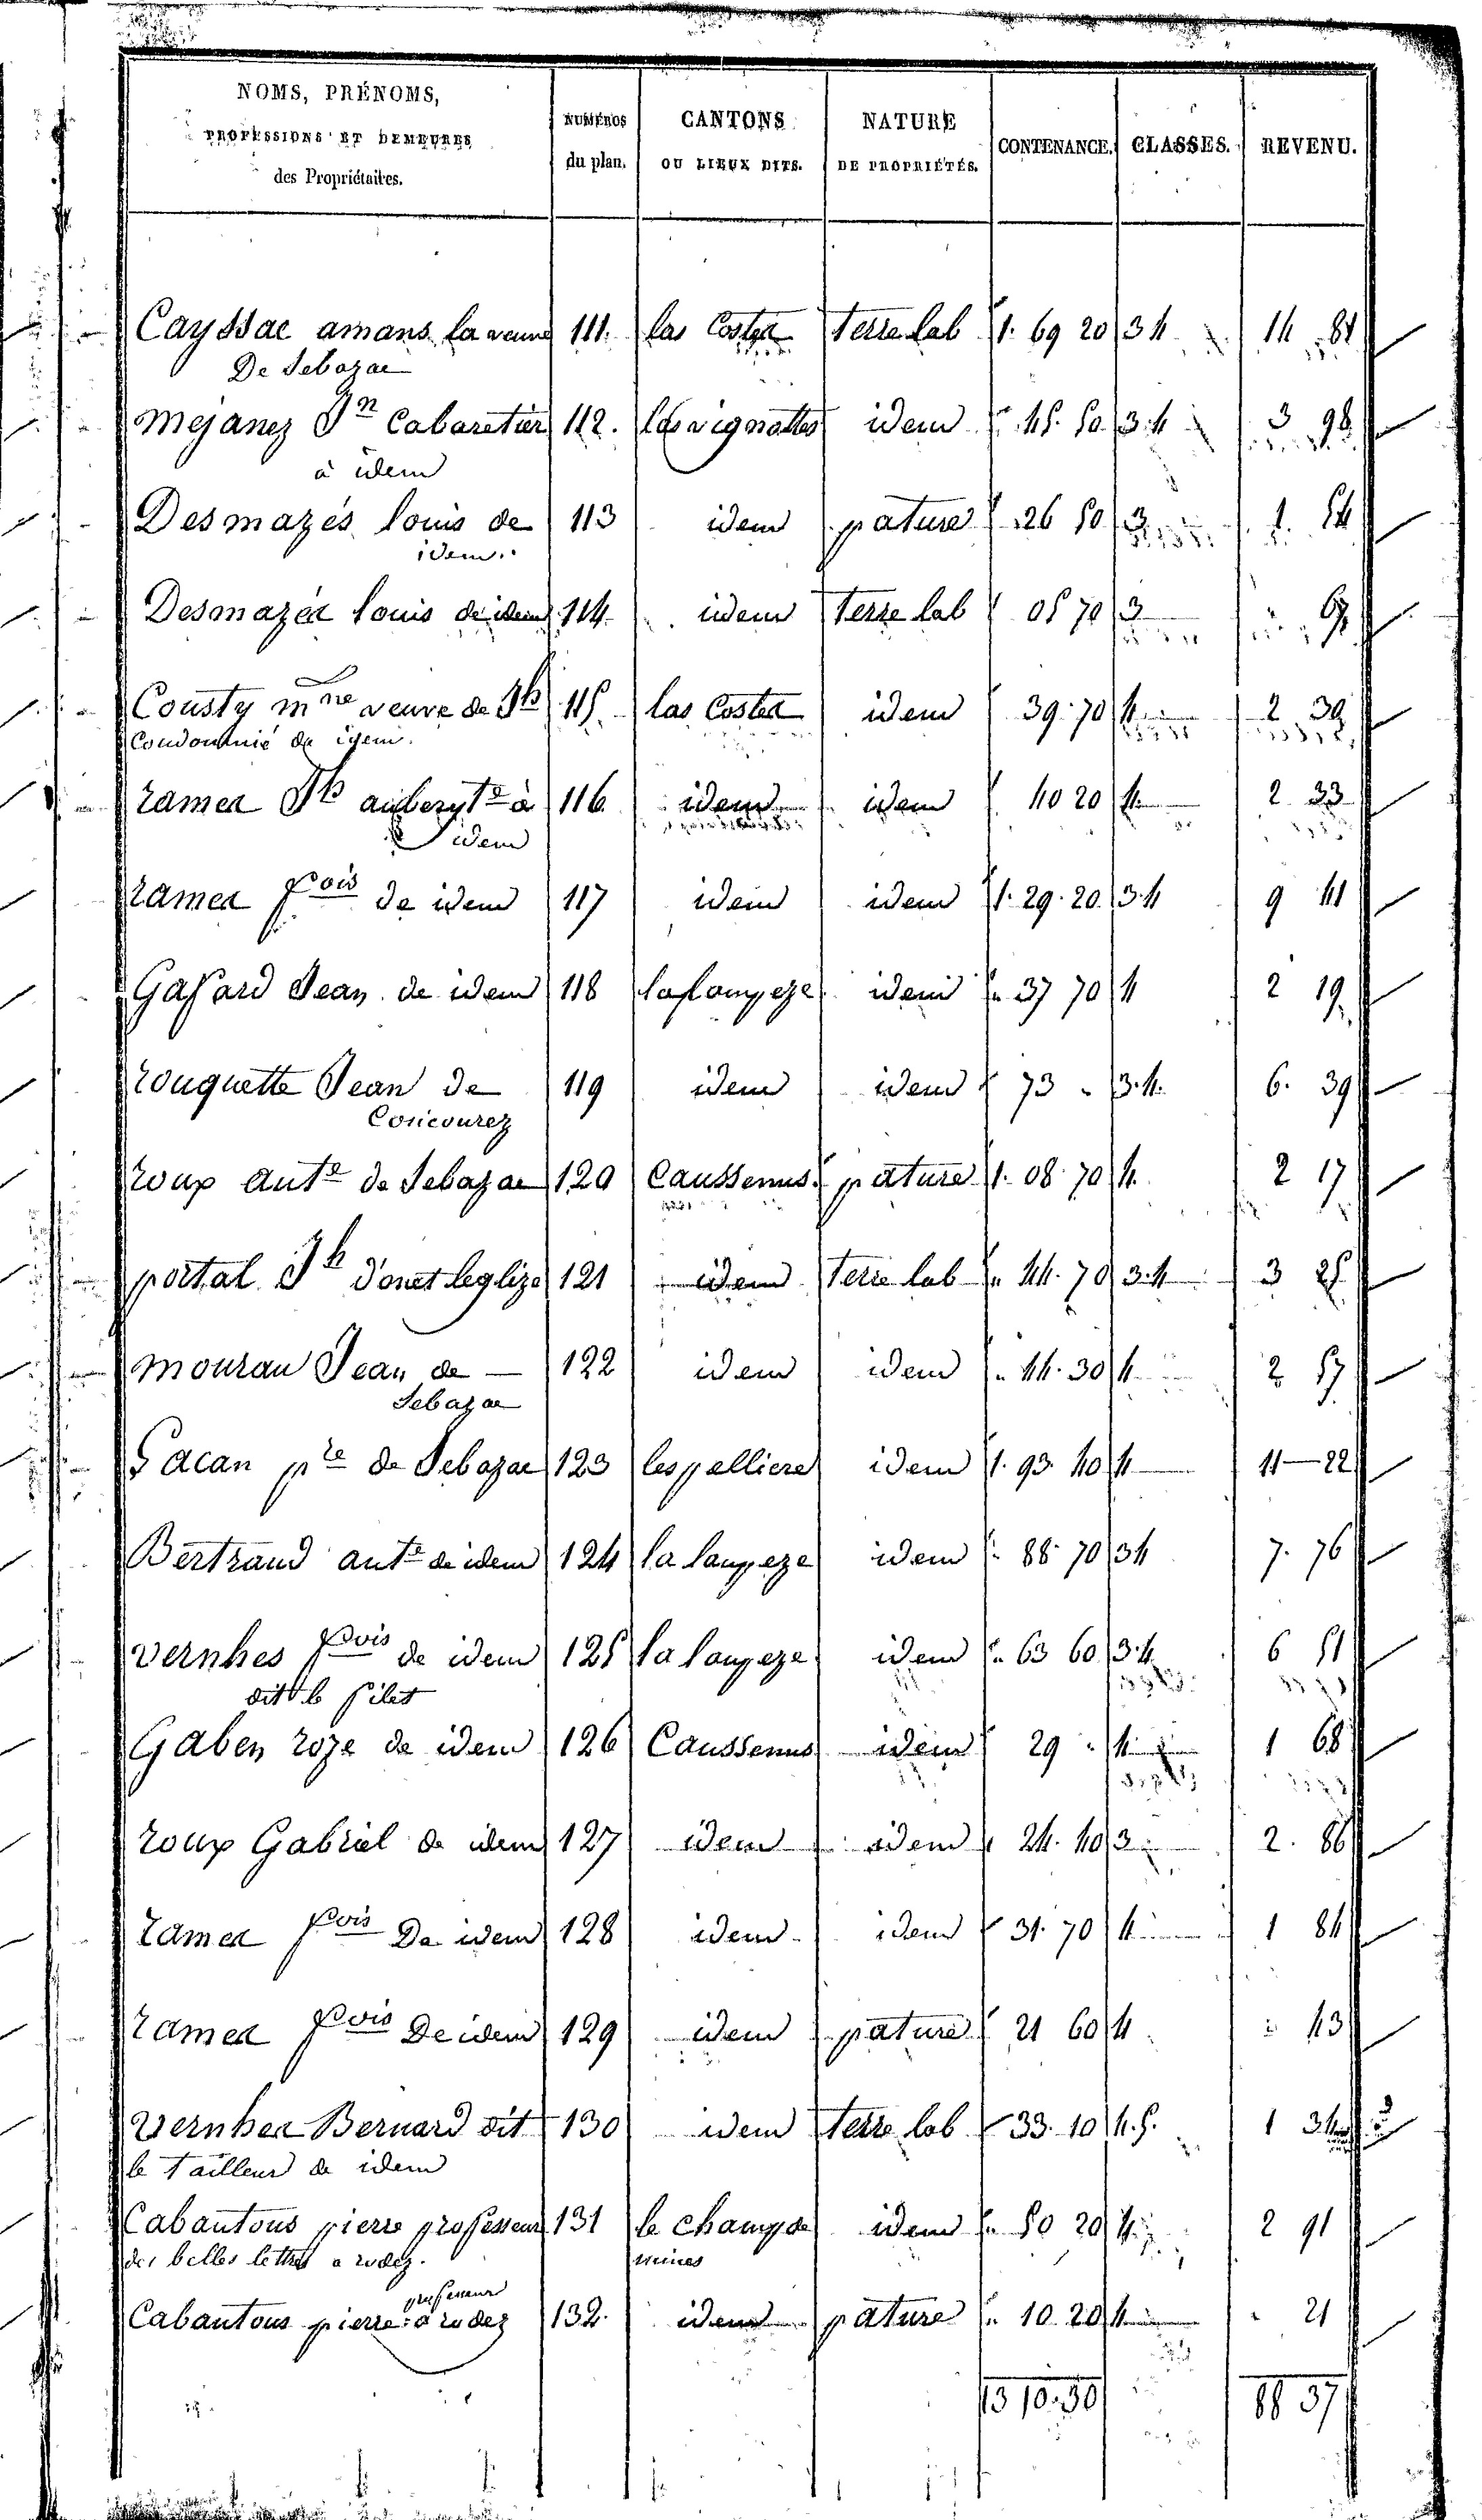 NOMS, PRÉNOMS,
PROFESSIONS ET DEMEURES
des Propriétaires.
NUMÉROS
du plan.
CANTONS
OU LIEUX DITS.
NATURE
DE PROPRIÉTÉS.
CONTENANCE.
CLASSES.
REVENU.
Cayssac amans la veuve 111. las Costes terre lab 1. 69 20 3 4 14 81
De Sebazac
mejanes Jn Cabaretier 112. las vignottes idem " 45. 50. 3. 4 3 98
à idem
Desmazés louis de 113 idem pature " 26 50 3 1. 54
idem.
Desmazes louis de idem 114 idem terre lab " 05 70 3 "
Cousty mne veuve de Jh 115. las Costes idem 39. 70 4 2. 30
Coudommié de idem.
rames Jh aubergte à 116 idem idem 40 20 4 2. 33
idem
rames fois de idem 117 idem idem 1. 29. 20. 3. 4 9 41
Gafard Jean de idem 118 lalongeze idem " 37 70 4 2 19
rouquette Jean de 119 idem idem " 73 " 3. 4. 6. 39
Concourez
roux ante de Sebazac 120 Caussenus pature 1. 08. 70 4. 2 17
portal Jh d'onet leglize 121 idem terre lab " 44. 70 3. 4 3 25
mouran Jean de — 122 idem idem " 44. 30 4 2 57
Sebazac
Lacan pre de Sebazac 123 lespelliere idem 1. 93. 40 4 11 — 22
Bertrand ante de idem 124 la langeze idem " 88. 70 3 4 7. 76
vernhes fois de idem 125 la longeze idem " 63 60 3. 4 6 51
dit le filet
Gaben roze de idem 126 Caussenus idem 29 " 4 1 68
roux Gabriel de idem 127 idem idem " 24. 40 3 2. 86
rames fois De idem 128 idem idem " 31. 70 4 1 84
rames fois De idem 129 idem pature " 21 60 4 " 43
vernhes Bernard dit 130 idem terre lab " 33. 10 4. 5. 1 34
le tailleur de idem
Cabantous pierre professeur 131 le champ de idem " 50 20 4 2 91
des belles lettres a rodez. mines
professeur
Cabantous pierre à rodez 132. idem pature " 10. 20 4 " 21
13 10. 30 88 37